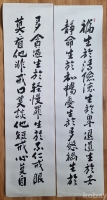 福生於清儉德生於卑退道生於安
靜命生於和暢憂生於多慾禍生於
多貪過生於輕慢罪生於不仁戒眼
莫看他非戒口莫談他短戒心莫自